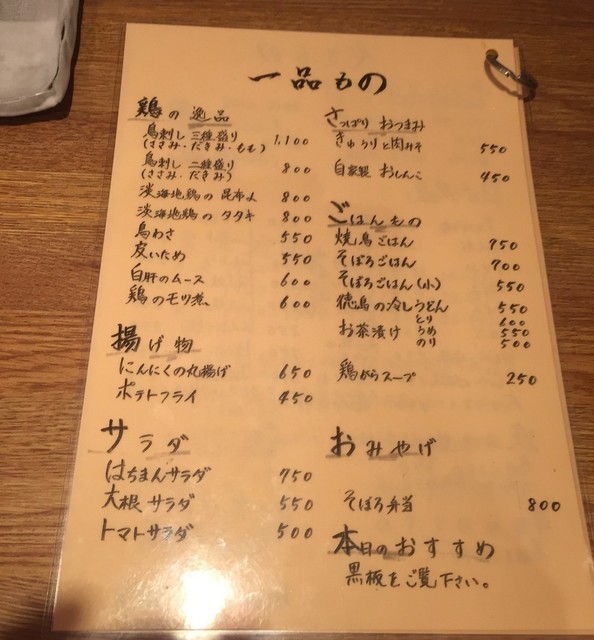 一品もの
鶏の逸品
鳥刺し 三種盛り 1,100
(ささみ・だきみ・もも)
鳥刺し 二種盛り 800
(ささみ・だきみ)
淡海地鶏の昆布〆 800
淡海地鶏のタタキ 800
鳥わさ 550
皮いため 550
白肝のムース 600
鶏のモツ煮 600
揚げ物
にんにくの丸揚げ 650
ポテトフライ 450
サラダ
はちまんサラダ 750
大根サラダ 550
トマトサラダ 500
さっぱりおつまみ
きゅうりと肉みそ 550
自家製 おしんこ 450
ごはんもの
焼鳥ごはん 750
そぼろごはん 700
そぼろごはん(小) 550
徳島の冷しうどん 550
お茶漬け とり 600
うめ 550
のり 500
鶏がらスープ 250
おみやげ
そぼろ弁当 800
本日のおすすめ
黒板をご覧下さい。